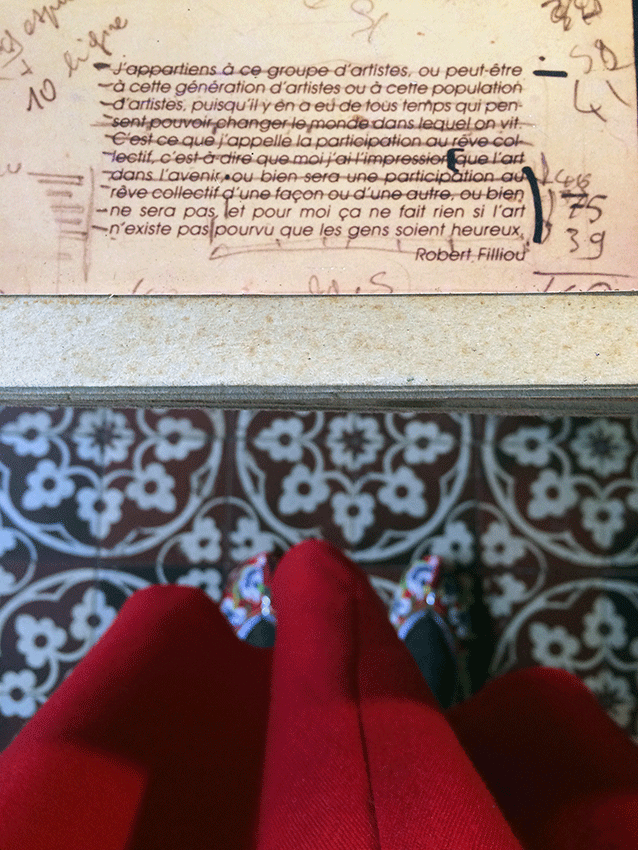 10 ligne
J'appartiens à ce groupe d'artistes, ou peut-être
à cette génération d'artistes ou à cette population
d'artistes, puisqu'il y en a eu de tous temps qui pen-
sent pouvoir changer le monde dans lequel on vit.
C'est ce que j'appelle la participation au rêve col-
lectif, c'est-à-dire que moi j'ai l'impression que l'art
dans l'avenir, ou bien sera une participation au
rêve collectif d'une façon ou d'une autre, ou bien
ne sera pas, et pour moi ça ne fait rien si l'art
n'existe pas pourvu que les gens soient heureux.
Robert Filliou
75
39